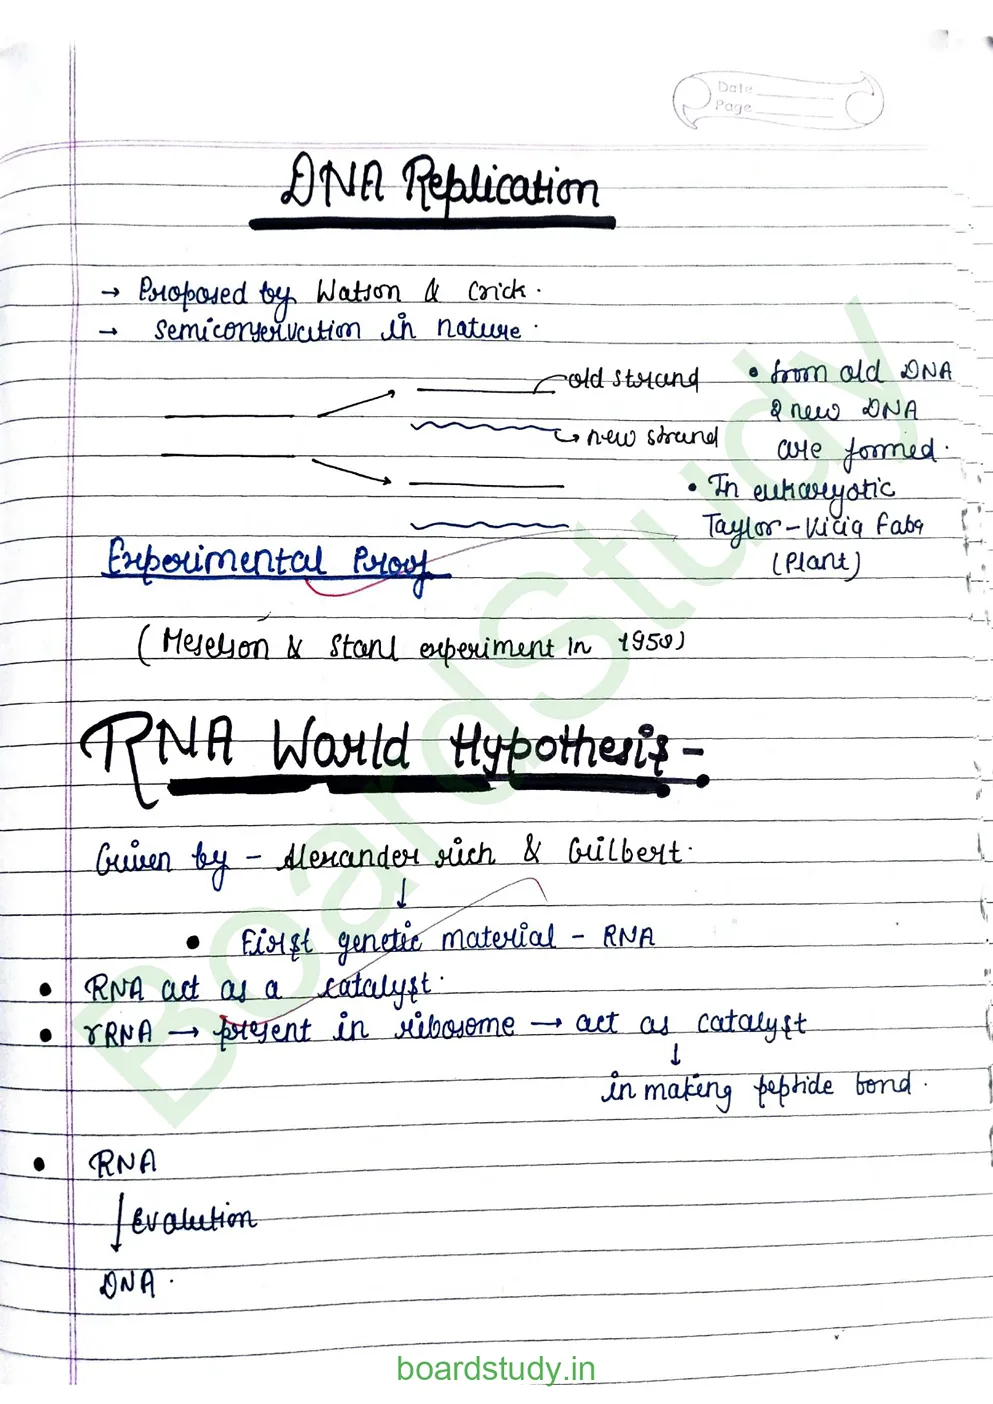 Date
Page
DNA Replication
→ Proposed by Watson & Crick.
→ Semiconservation in nature.
old strand
new strand
• from old DNA
2 new DNA
are formed.
• In eukaryotic
Taylor - Vicia Faba
(Plant)
Experimental Proof
(Meselson & Stanl experiment in 1958)
RNA World Hypothesis -
Given by - Alexander rich & Guilbert.
↓
• First genetic material - RNA
• RNA act as a catalyst.
• rRNA → present in ribosome → act as catalyst
↓
in making peptide bond.
• RNA
↓ Evolution
DNA.
BoardStudy
boardstudy.in